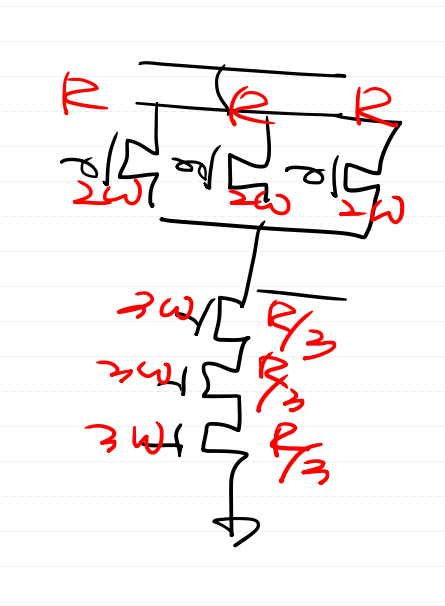 R R R
2W 2W 2W
3W R/3
3W R/3
3W R/3